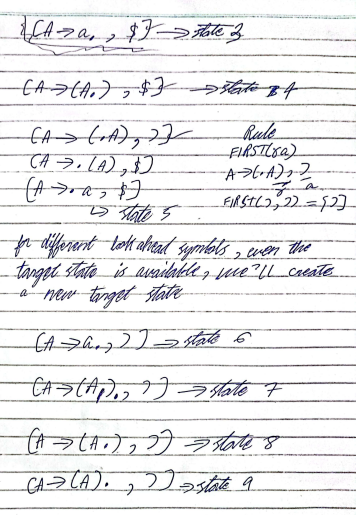 [A → a. , $] → state 3
[A → (A.) , $] → state 4
[A → (.A) , )]
Rule
[A → .(A) , $]
FIRST(γa)
[A → .a , $]
A → (.A) , )
γ a
↳ state 5
FIRST( ), ) ) = { ) }
for different look ahead symbols, even the
target state is available, we'll create
a new target state
[A → a. , )] → state 6
[A → (A). , )] → state 7
[A → (A.) , )] → state 8
[A → (A). , )] → state 9